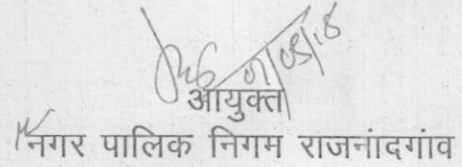 01/09/18
आयुक्त
नगर पालिक निगम राजनांदगांव